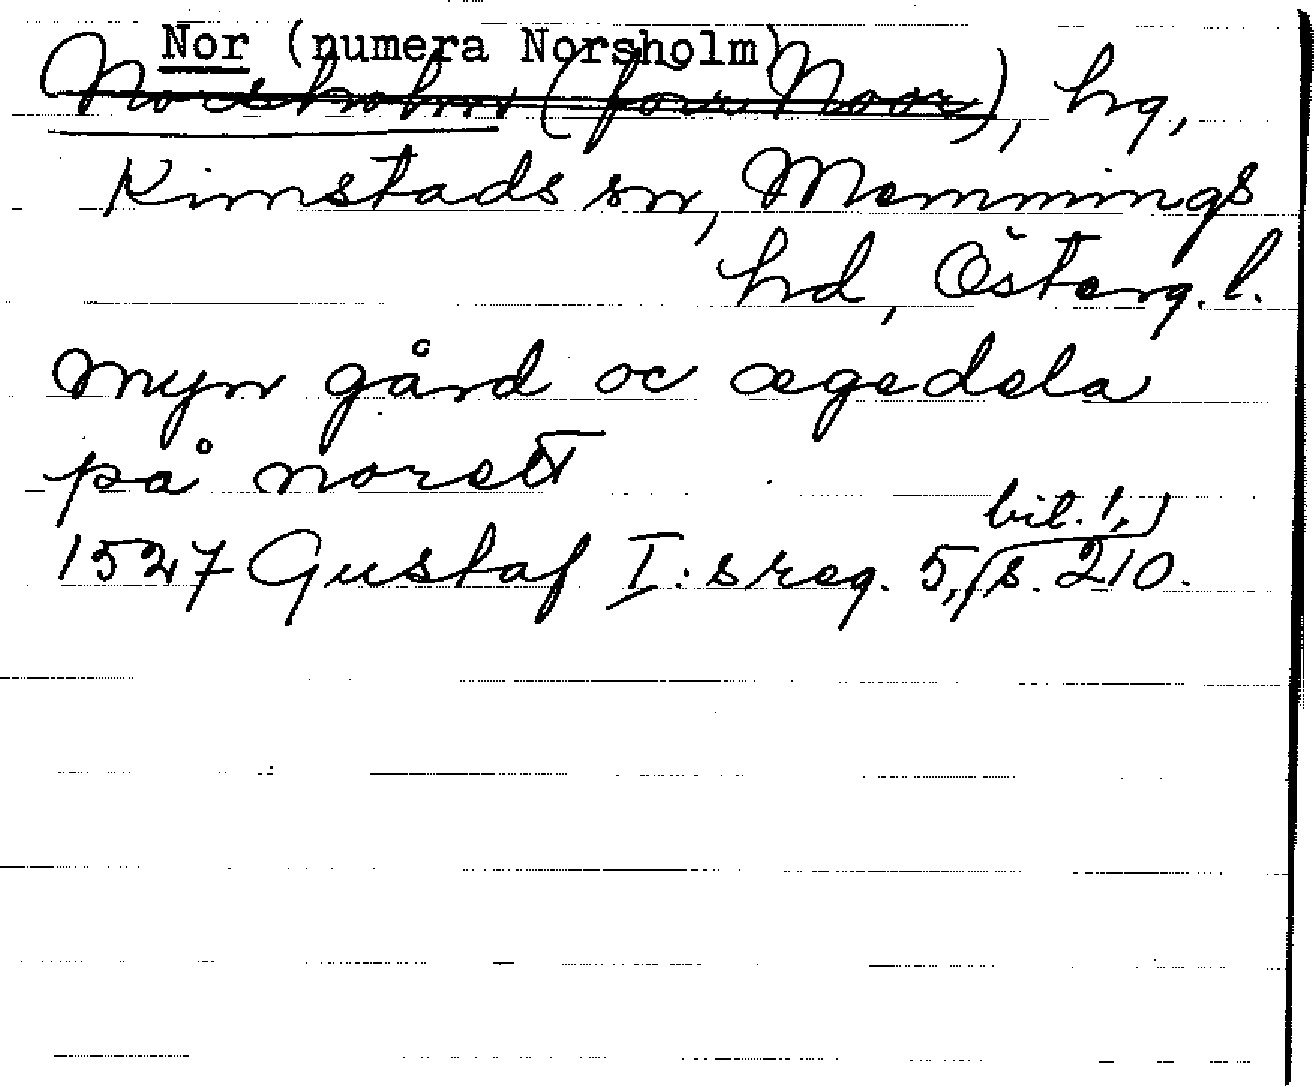 Nor (numera Norsholm)
Norsholm (förr Noor), hg,
Kimstads sn, Memmings
hd, Österg. l.
myn gård oc ægedela
på norett
bil. 1,
1527 Gustaf I:s reg. 5, s. 210.